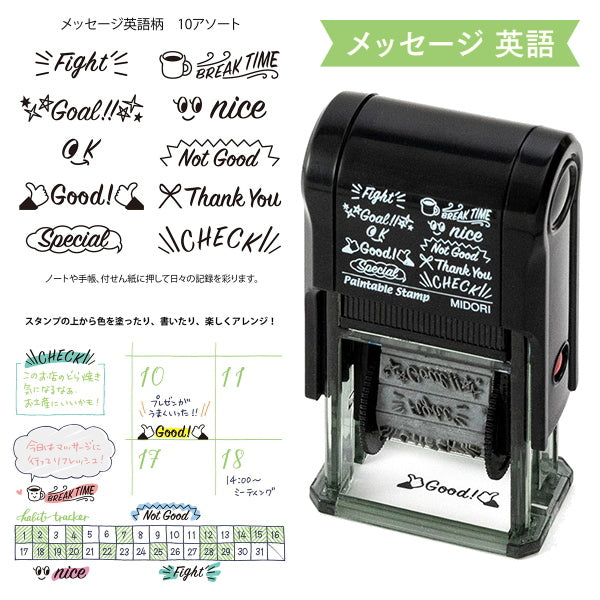 メッセージ英語柄　10アソート
メッセージ 英語
Fight
BREAK TIME
Goal!!
nice
OK
Not Good
Good!
Thank You
Special
CHECK!
ノートや手帳、付せん紙に押して日々の記録を彩ります。
スタンプの上から色を塗ったり、書いたり、楽しくアレンジ！
CHECK!
このお店のどら焼き
気になるなぁ
お土産にいいかも！
10 11
プレゼンが
うまくいった!!
Good!
17 18
14:00〜
ミーティング
今日はマッサージに
行ってリフレッシュ！
BREAK TIME
habit tracker
Not Good
1 2 3 4 5 6 7 8 9 10 11 12 13 14 15 16
17 18 19 20 21 22 23 24 25 26 27 28 29 30 31
nice
Fight
Fight
BREAK TIME
Goal!!
nice
OK
Not Good
Good!
Thank You
Special
CHECK!
Paintable Stamp
MIDORI
Good!